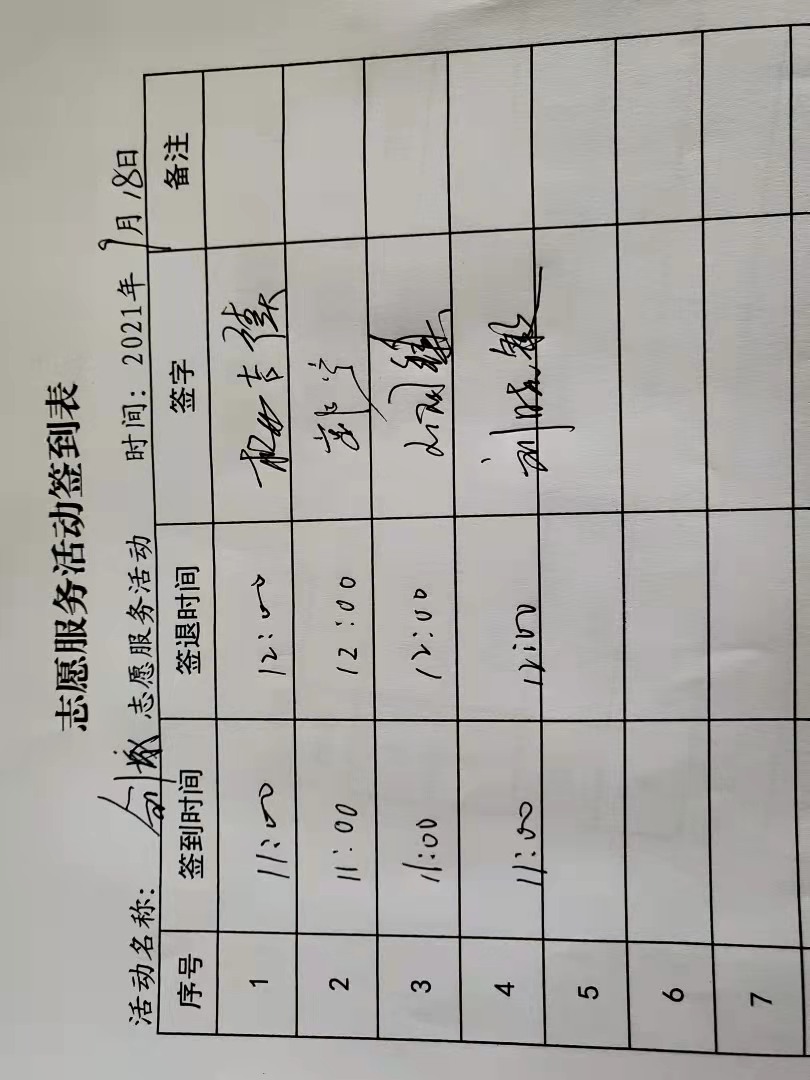 志愿服务活动签到表
活动名称: 创城 志愿服务活动 时间: 2021年 9月 18日
序号 签到时间 签退时间 签字 备注
1 11:00 12:00
2 11:00 12:00
3 11:00 12:00
4 11:00 12:00 刘晓敏
5
6
7